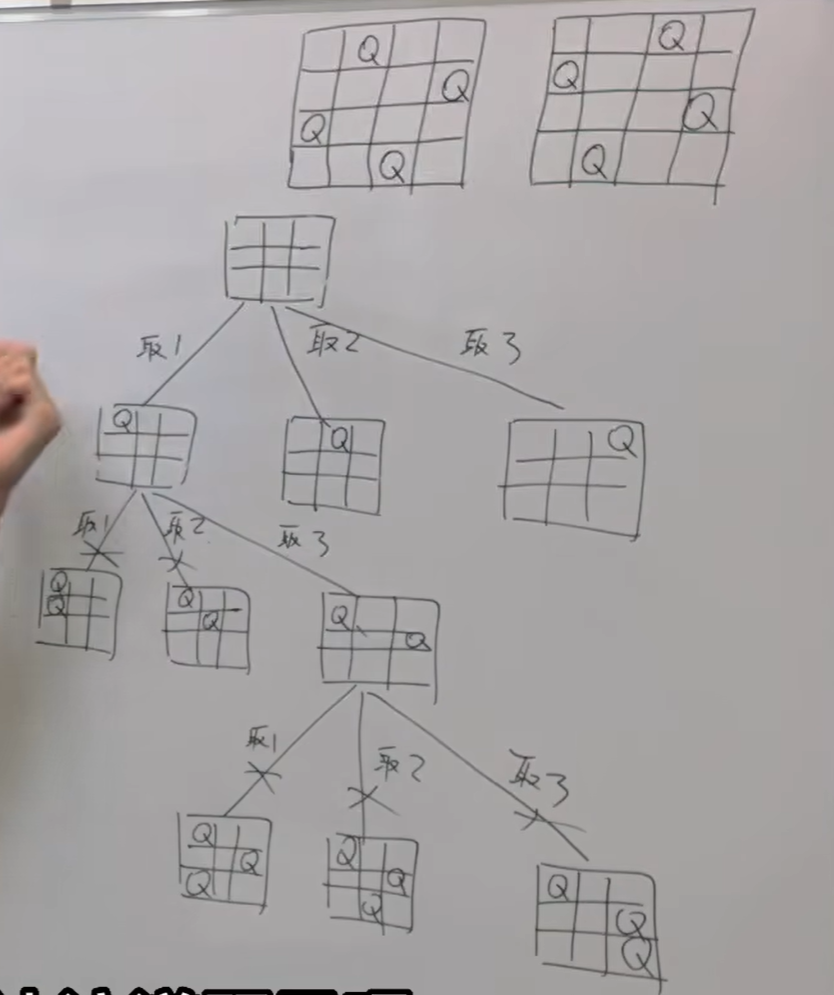 Q Q
Q Q
Q Q
Q Q
取1 取2 取3
Q Q Q
取1 取2 取3
Q Q Q
Q Q Q
取1 取2 取3
Q Q Q
Q Q Q
Q Q Q